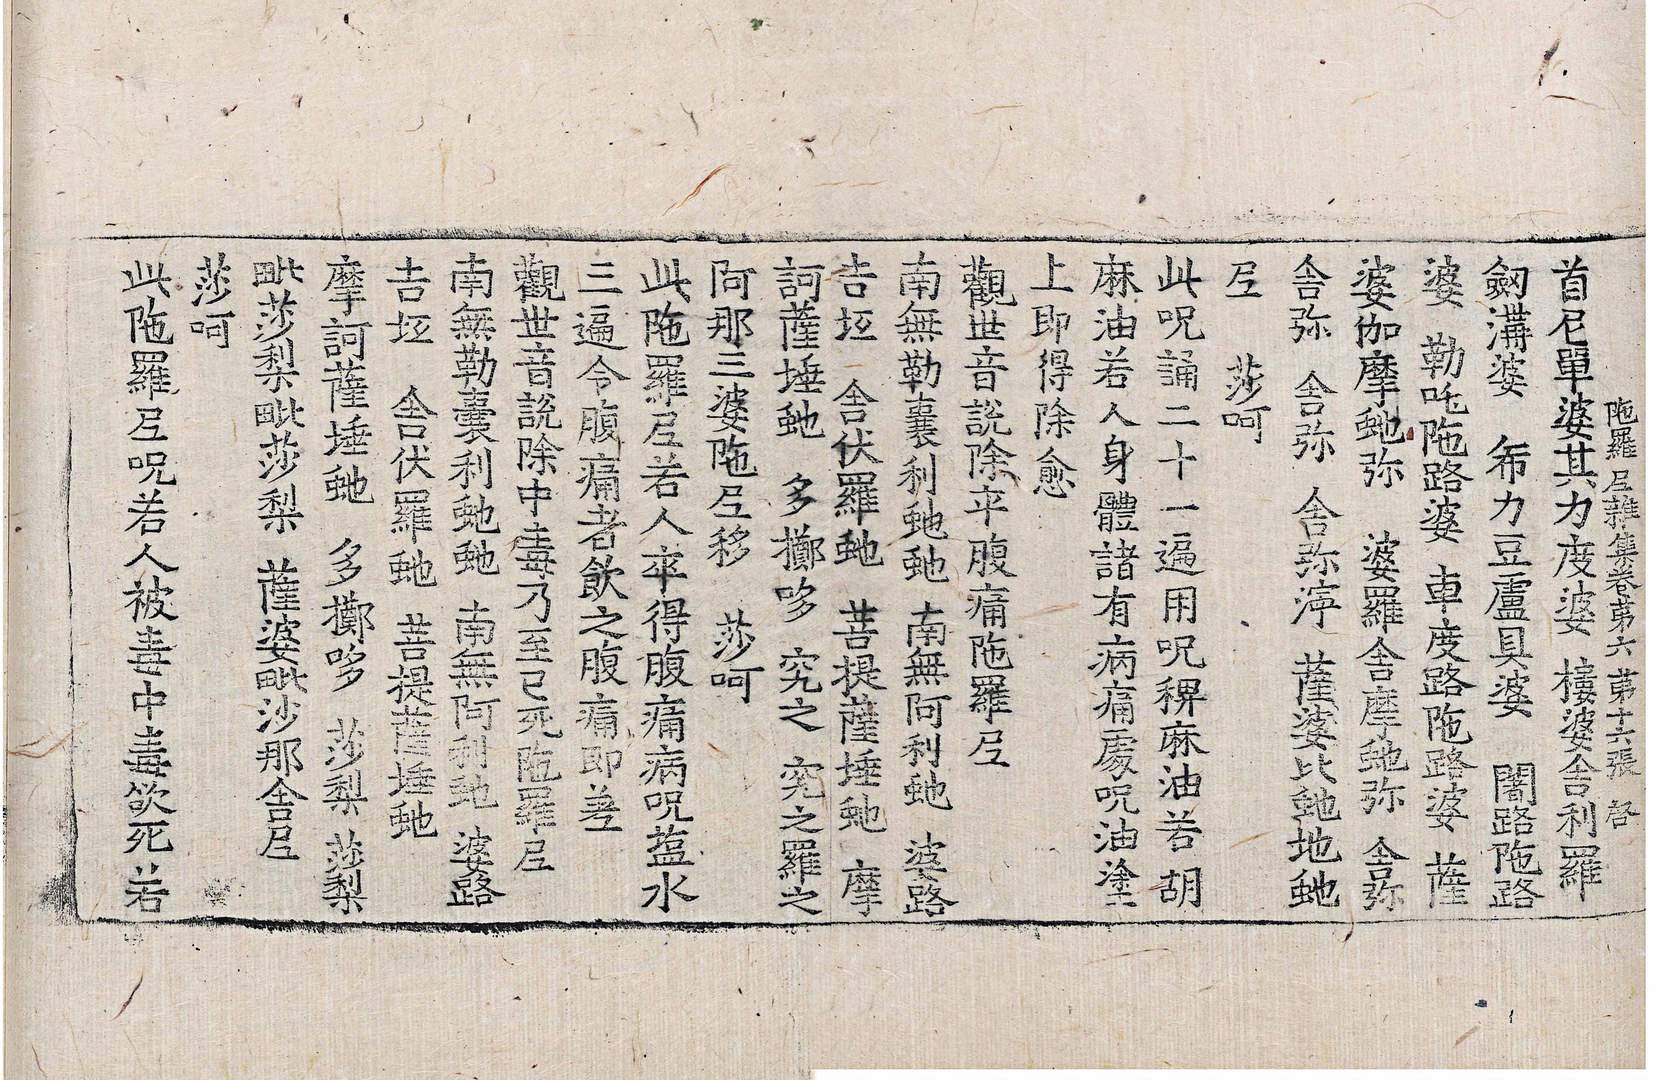 陁羅𡰱雜集卷第六 第十六張 啓
首尼單婆其力度婆 樓婆舍利羅
劔溝婆 希力豆盧具婆 闍路陁路
婆 勒吒陁路婆 車度路陁路婆 薩
婆伽摩虵弥 婆羅舍摩虵弥 舍弥
舍弥 舍弥 舍弥渟 薩婆比虵地虵
𡰱 莎呵
此呪誦二十一遍用呪稗麻油若胡
麻油若人身體諸有病痛處呪油塗
上即得除愈
觀世音說除卒腹痛陁羅𡰱
南無勒囊利虵虵 南無阿利虵 婆路
吉坘 舍伏羅虵 菩提薩埵虵 摩
訶薩埵虵 多擲哆 究之 究之羅之
阿那三婆陁𡰱移 莎呵
此陁羅𡰱若人卒得腹痛病呪塩水
三遍令腹痛者飮之腹痛即差
觀世音說除中毒乃至已死陁羅𡰱
南無勒囊利虵虵 南無阿利虵 婆路
吉坘 舍伏羅虵 菩提薩埵虵
摩訶薩埵虵 多擲哆 莎梨 莎梨
毗莎梨毗莎梨 薩婆毗沙那舍𡰱
莎呵
此陁羅𡰱呪若人被毒中毒欲死若